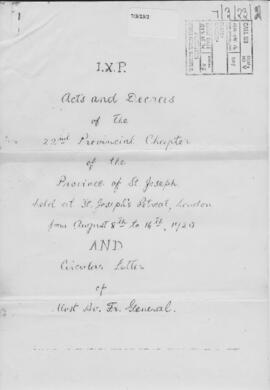 I.X.P.
Acts and Decrees
of the
22nd Provincial Chapter
of the
Province of St Joseph
held at St. Joseph's Retreat, London
from August 8th to 16th, 1920
AND
Circular Letter
of
Most Rev. Fr. General.